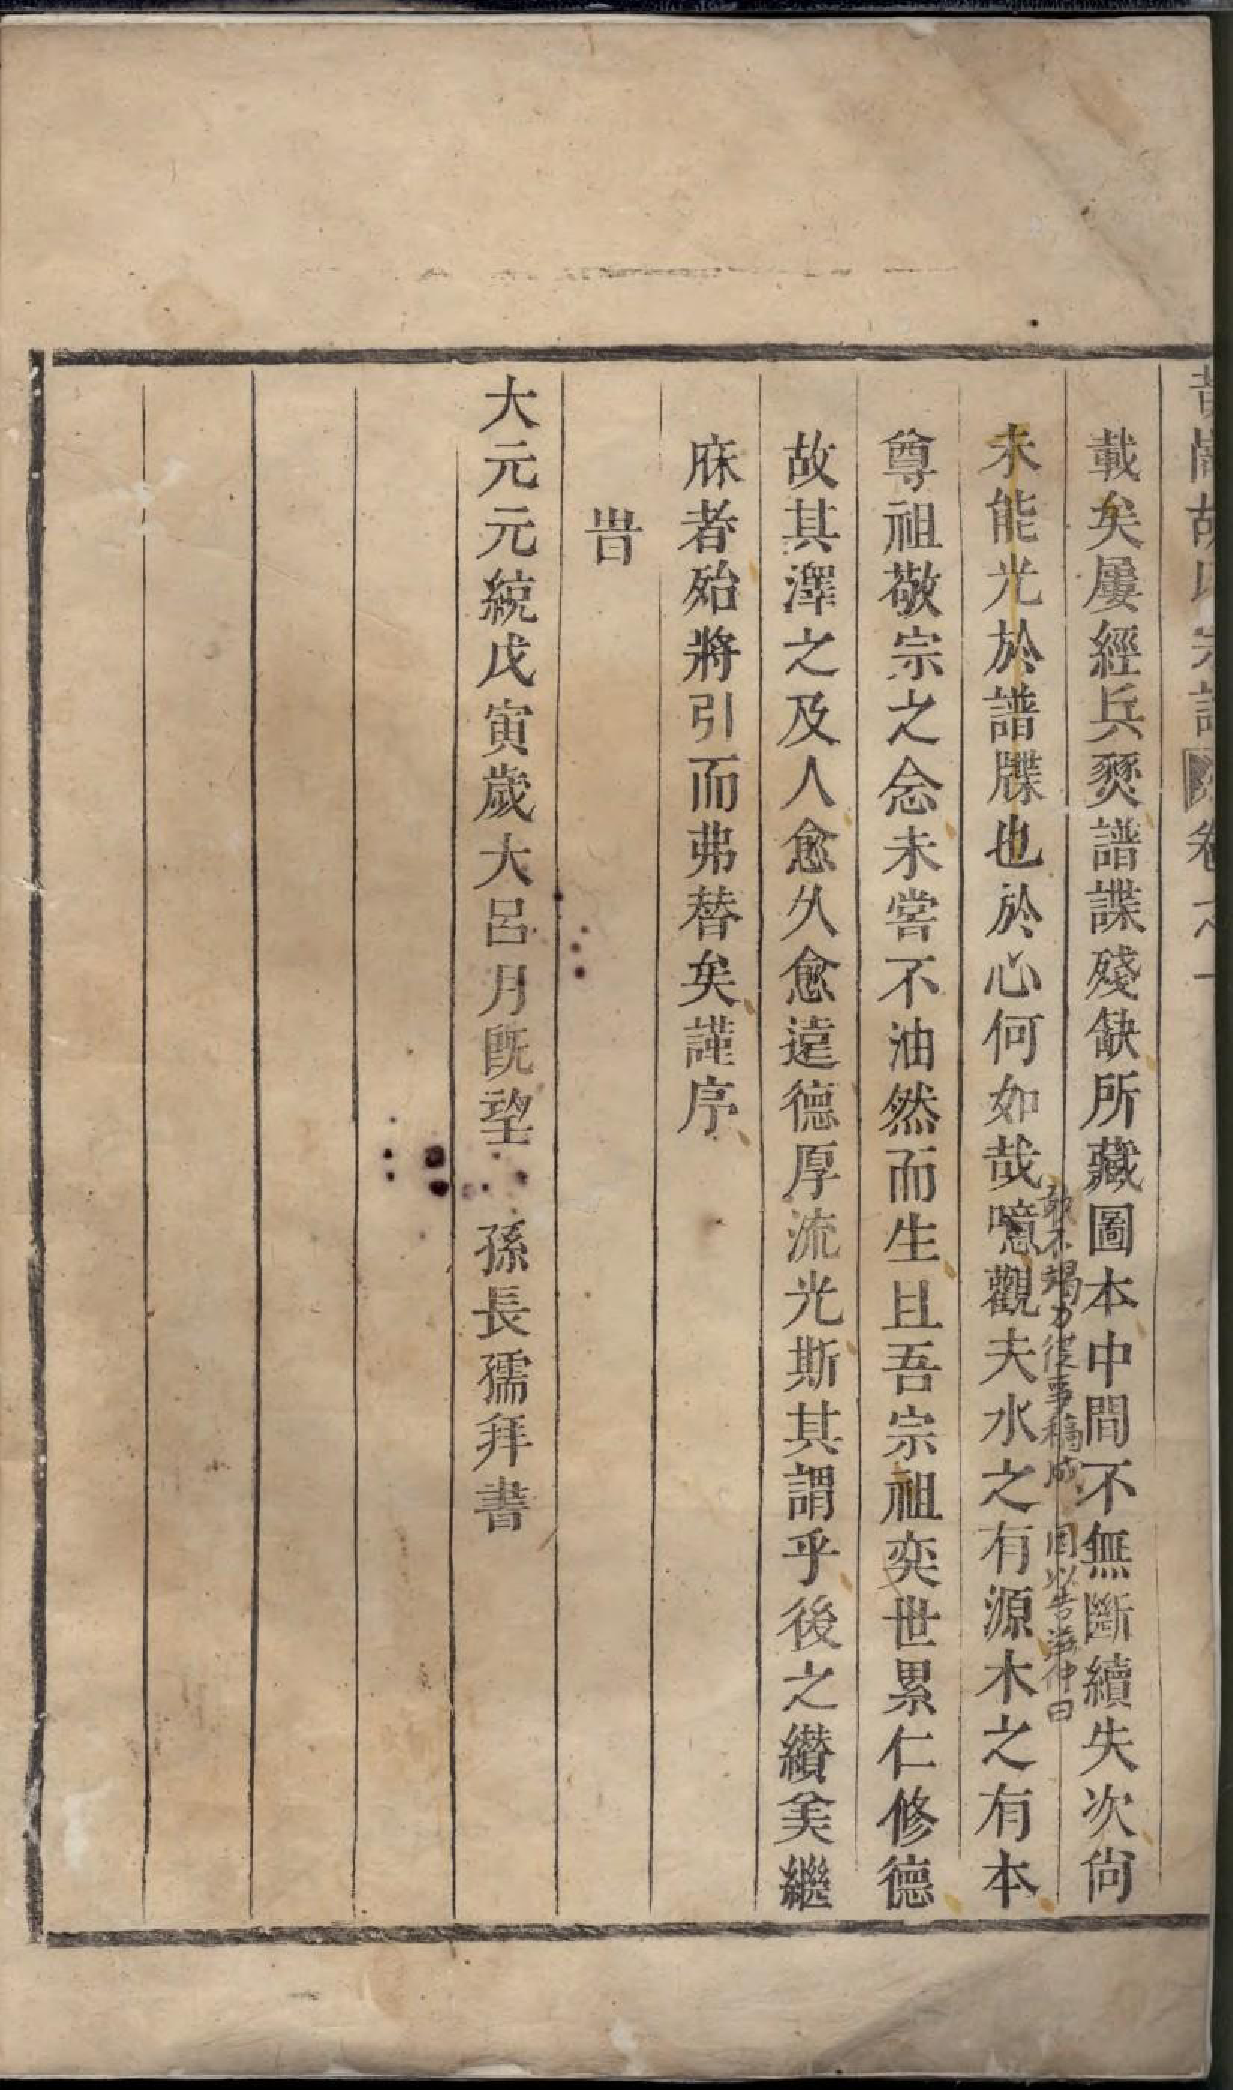 胡氏宗譜 卷之一
載矣屢經兵燹譜諜殘缺所藏圖本中間不無斷續失次尙
敢不竭力從事稿成 因以告滋仲曰
未能光於譜牒也於心何如哉噫觀夫水之有源木之有本
尊祖敬宗之念未嘗不油然而生且吾宗祖奕世累仁修德
故其澤之及人愈久愈遠德厚流光斯其謂乎後之纉美繼
庥者殆將引而弗替矣謹序
旹
大元元統戊寅歲大呂月旣望 孫長孺拜書